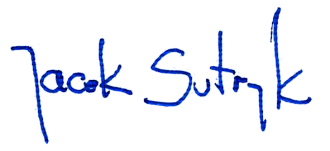 Jacek Sutryk